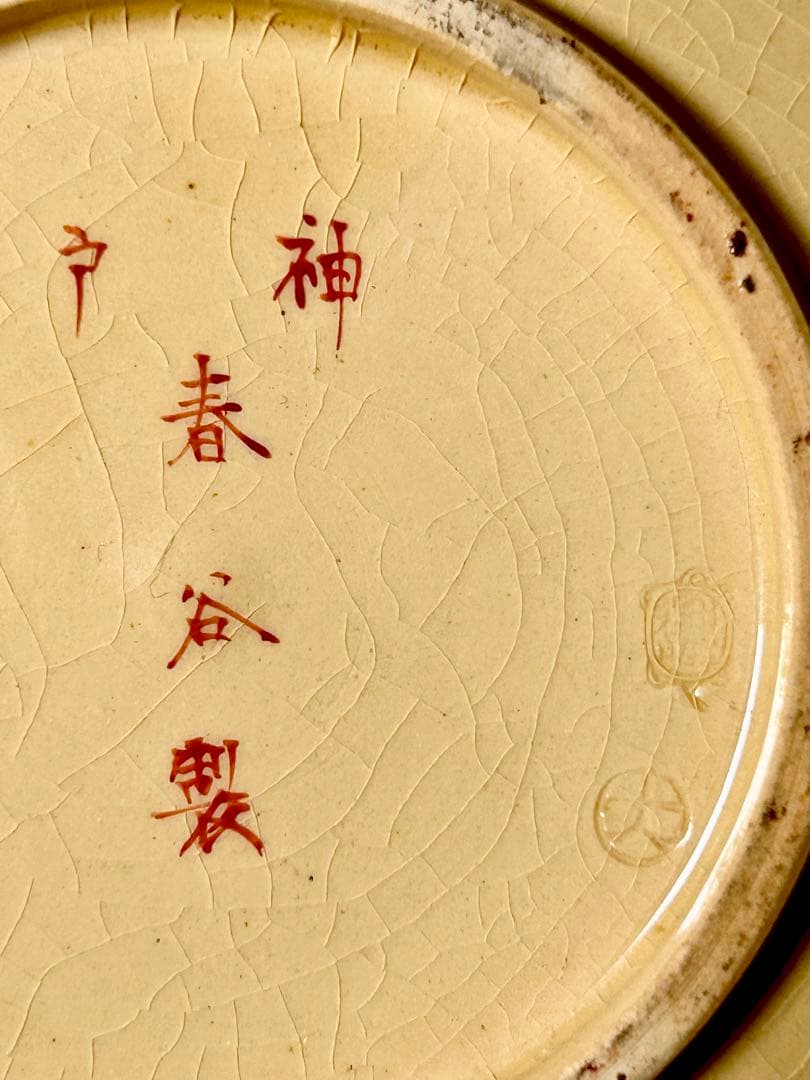 神戸
春谷製